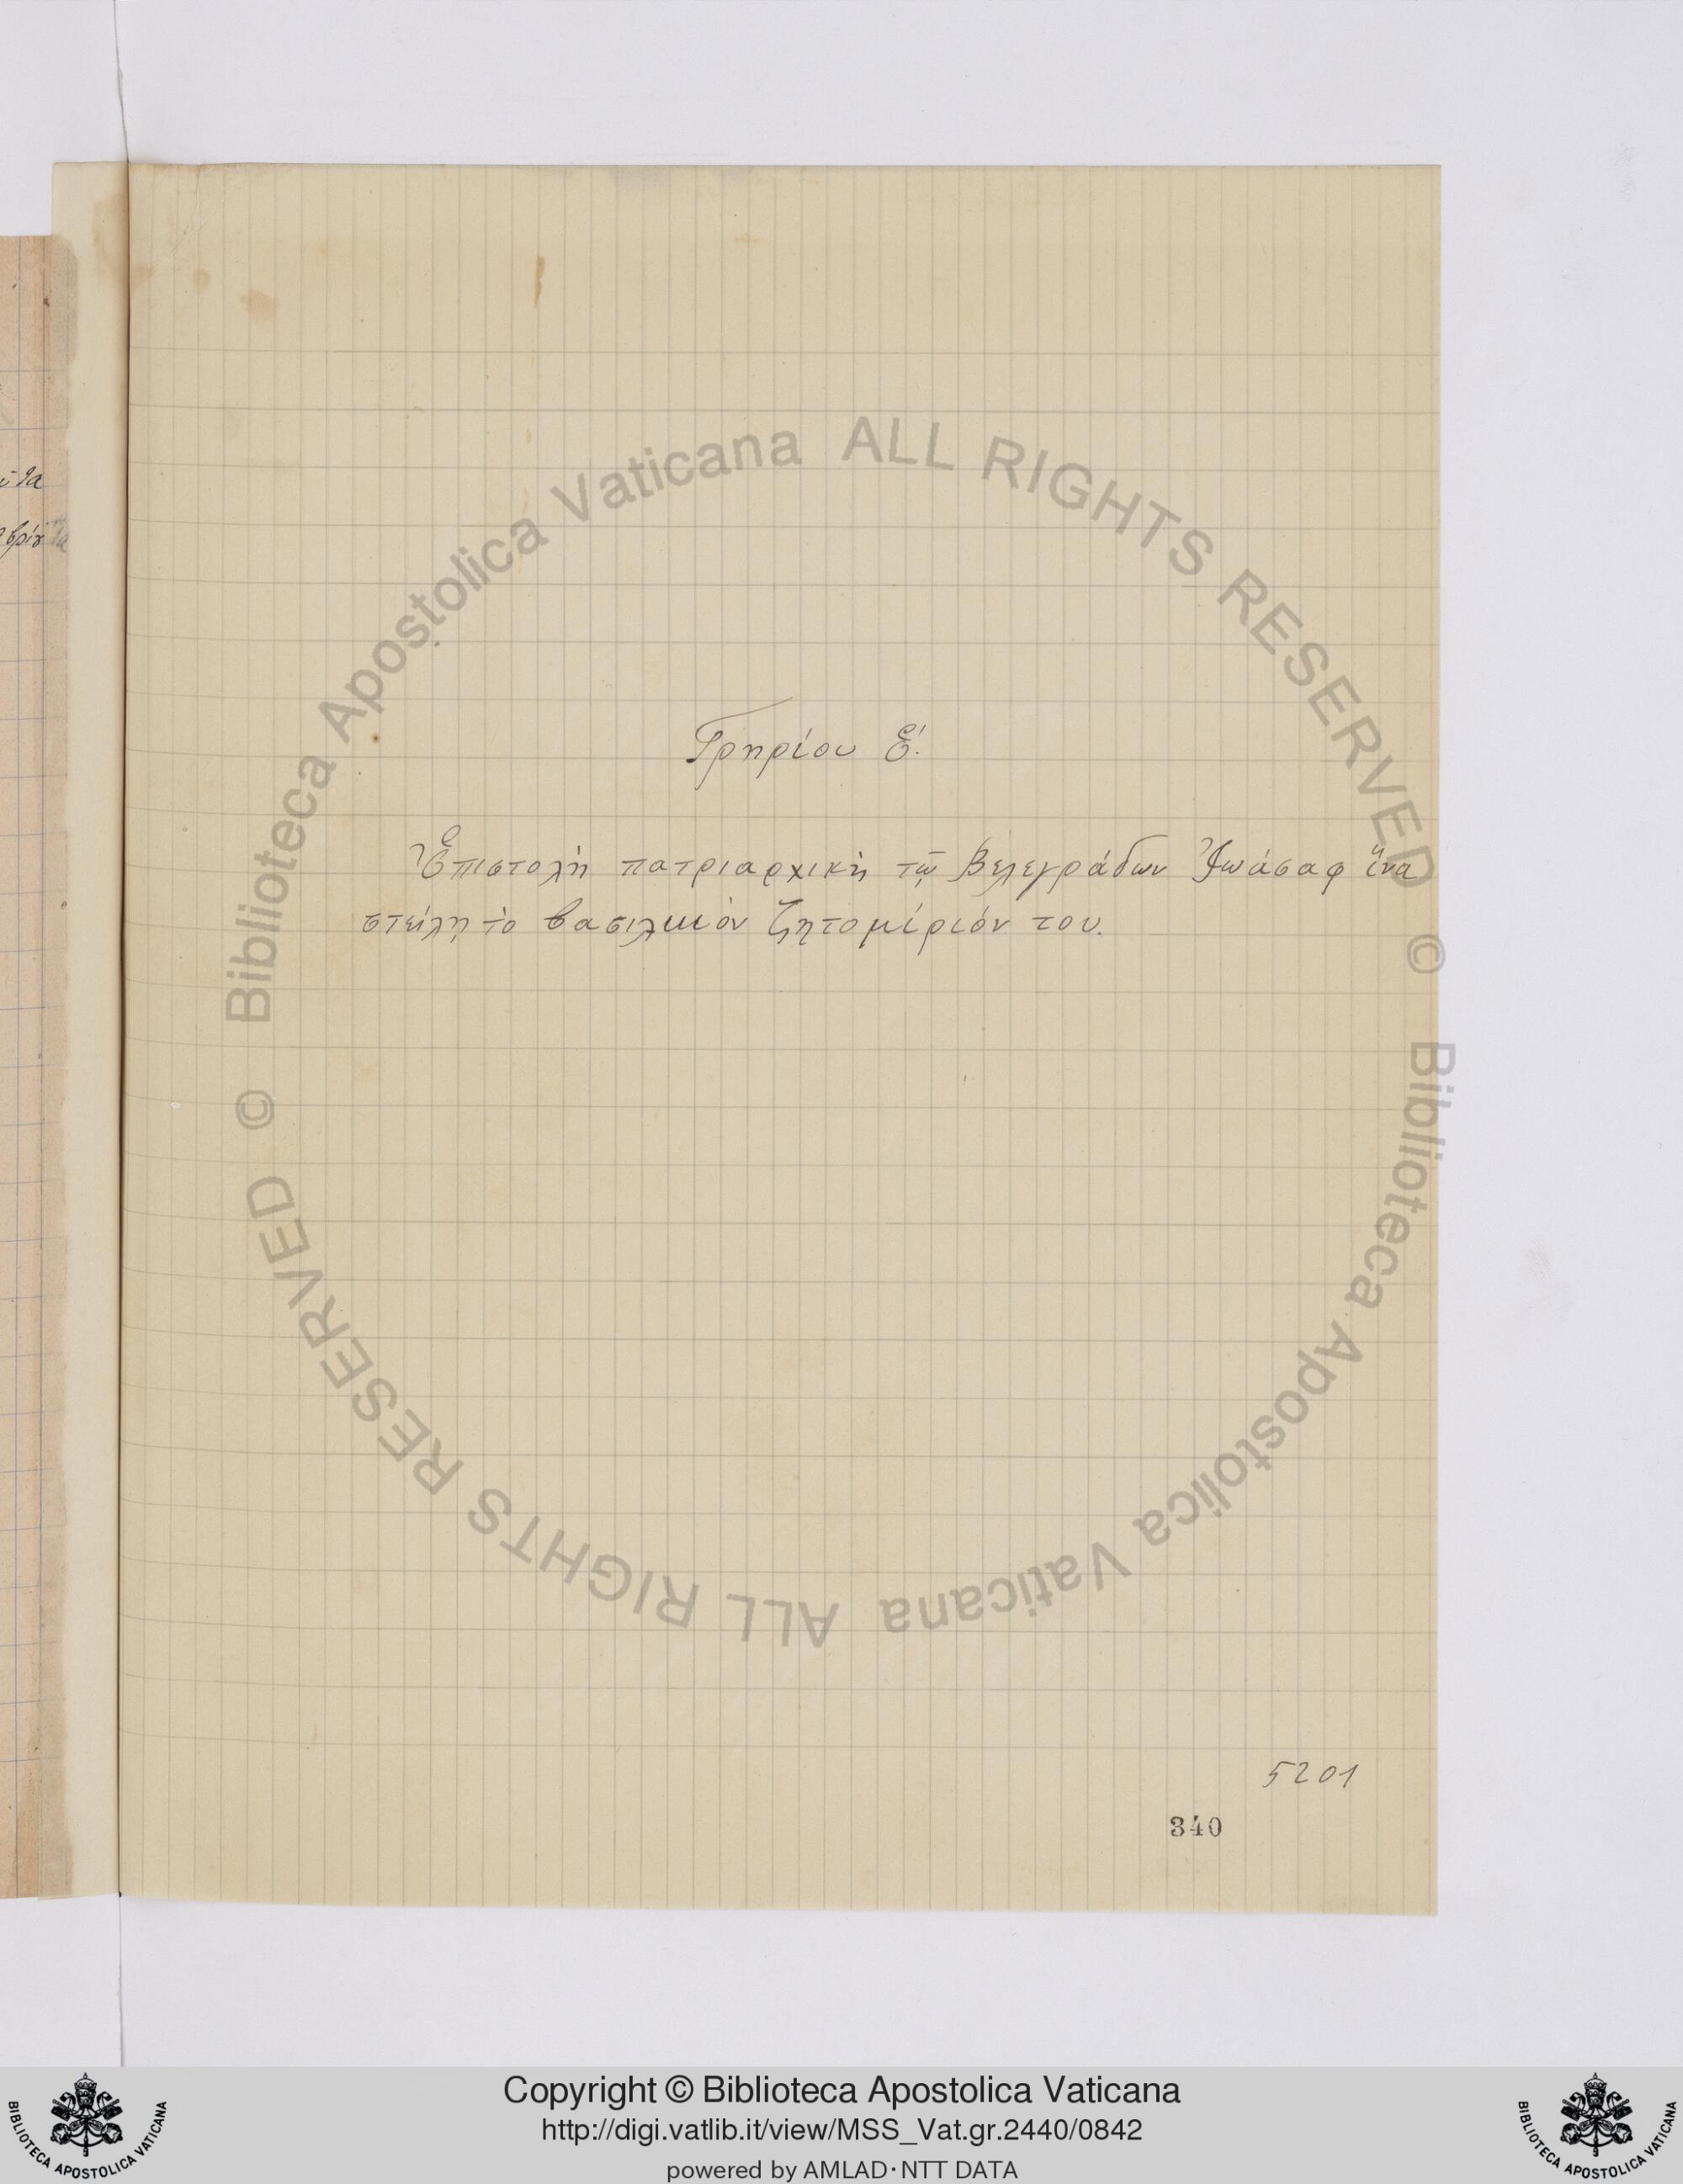 Γρηρίου Ε΄.
Ἐπιστολὴ πατριαρχικὴ τῷ Βελεγράδων Ἰωάσαφ ἵνα
στείλῃ τὸ βασιλικὸν ζητομίριόν του.
5201
340
© Biblioteca Apostolica Vaticana ALL RIGHTS RESERVED
© Biblioteca Apostolica Vaticana ALL RIGHTS RESERVED
Copyright © Biblioteca Apostolica Vaticana
http://digi.vatlib.it/view/MSS_Vat.gr.2440/0842
powered by AMLAD·NTT DATA
BIBLIOTECA APOSTOLICA VATICANA
BIBLIOTECA APOSTOLICA VATICANA